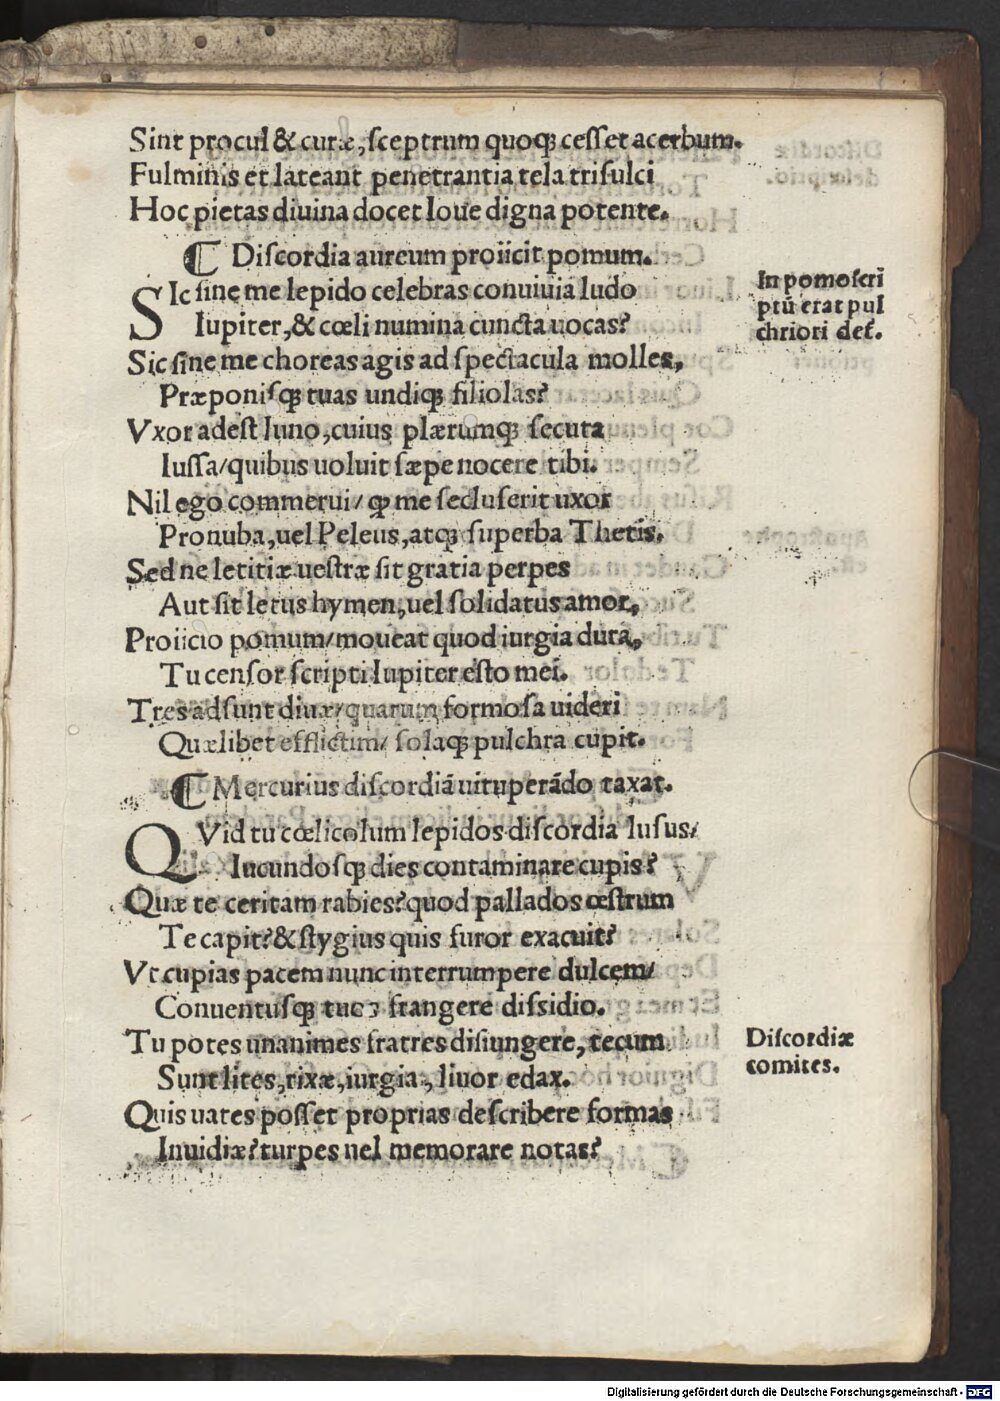 Sint procul & curæ, ſceptrum quoqꝫ ceſſet acerbum.
Fulminis et lateant penetrantia tela triſulci
Hoc pietas diuina docet Ioue digna potente.
¶ Diſcordia aureum proiicit pomum.
SIc ſine me lepido celebras conuiuia ludo
Iupiter, & cœli numina cuncta uocas?
Sic ſine me choreas agis ad ſpectacula molles,
Præponiſqꝫ tuas undiqꝫ filiolas?
Vxor adeſt Iuno, cuius plærumqꝫ ſecuta
Iuſſa/ quibus uoluit ſæpe nocere tibi.
Nil ego commerui/ ꝙ me ſecluſerit uxor
Pronuba, uel Peleus, atqꝫ ſuperba Thetis.
Sed ne letitiæ ueſtræ ſit gratia perpes
Aut ſit letus hymen, uel ſolidatus amor,
Proiicio pomum/ moueat quod iurgia dura,
Tu cenſor ſcripti Iupiter eſto mei.
Tres adſunt diuæ/ quarum formoſa uideri
Quælibet efflictim/ ſolaqꝫ pulchra cupit.
In pomo ſcri
ptū erat pul
chriori det̄.
¶ Mercurius diſcordiā uituperādo taxat.
QVid tu cœlicolum lepidos diſcordia luſus/
Iucundoſqꝫ dies contaminare cupis?
Quæ te ceritam rabies? quod pallados œſtrum
Te capit? & ſtygius quis furor exacuit?
Vt cupias pacem nunc interrumpere dulcem/
Conuentuſqꝫ tuo frangere diſſidio.
Tu potes unanimes fratres diſiungere, tecum
Sunt lites, rixæ, iurgia, liuor edax.
Quis uates poſſet proprias deſcribere formas
Inuidiæ? turpes uel memorare notas?
Diſcordiæ
comites.
Digitalisierung gefördert durch die Deutsche Forschungsgemeinschaft - DFG